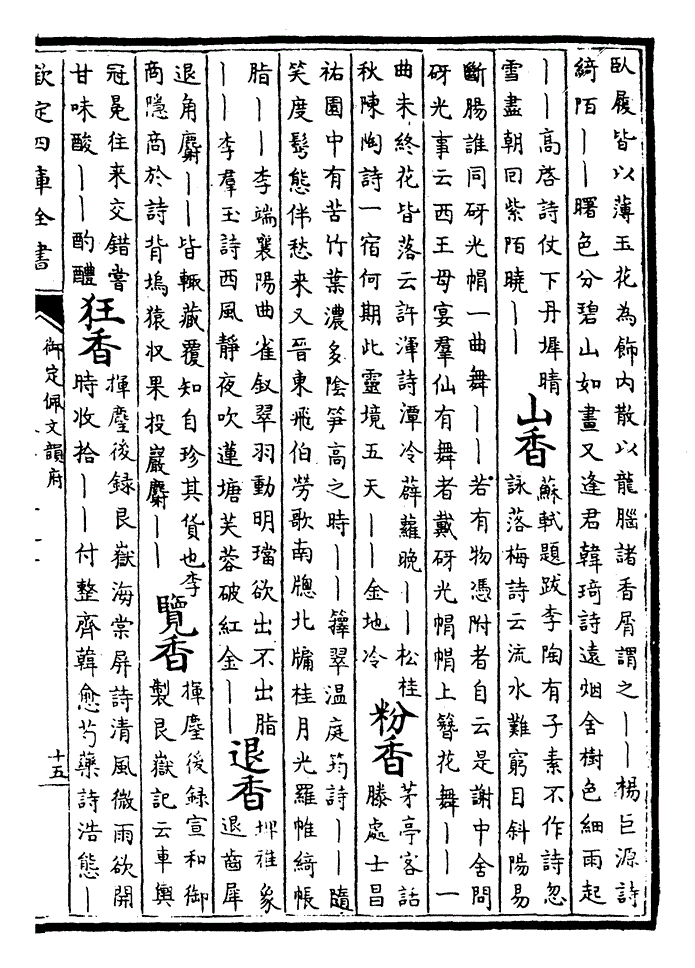 臥履皆以薄玉花為飾内散以龍腦諸香屑謂之丨丨楊巨源詩
綺陌丨丨曙色分碧山如畫又逢君韓琦詩遠烟舍樹色細雨起
丨丨高啓詩仗下丹墀晴
雪盡朝回紫陌曉丨丨
山香
蘇軾題跋李陶有子素不作詩忽
詠落梅詩云流水難窮目斜陽易
斷腸誰同砑光帽一曲舞丨丨若有物憑附者自云是謝中舍問
砑光事云西王母宴羣仙有舞者戴砑光帽帽上簪花舞丨丨一
曲未終花皆落云許渾詩潭冷薜蘿晚丨丨松桂
秋陳陶詩一宿何期此靈境五天丨丨金地冷
粉香
茅亭客話
滕處士昌
祐園中有苦竹葉濃多陰笋高之時丨丨籜翠温庭筠詩丨丨隨
笑度鬂態伴愁来又晉東飛伯勞歌南牎北牖桂月光羅帷綺帳
脂丨丨李端襄陽曲雀釵翠羽動明璫欲出不出脂
丨丨李羣玉詩西風靜夜吹蓮塘芙蓉破紅金丨丨
退香
埤雅象
退齒犀
退角麝丨丨皆輒藏覆知自珍其貨也李
商隱商於詩背塢猿収果投巖麝丨丨
覽香
揮麈後録宣和御
製艮嶽記云車輿
冠冕往来交錯嘗
甘味酸丨丨酌醴
狂香
揮麈後録艮嶽海棠屏詩清風微雨欲開
時收拾丨丨付整齊韓愈芍藥詩浩態丨
欽定四庫全書
御定佩文韻府
十五